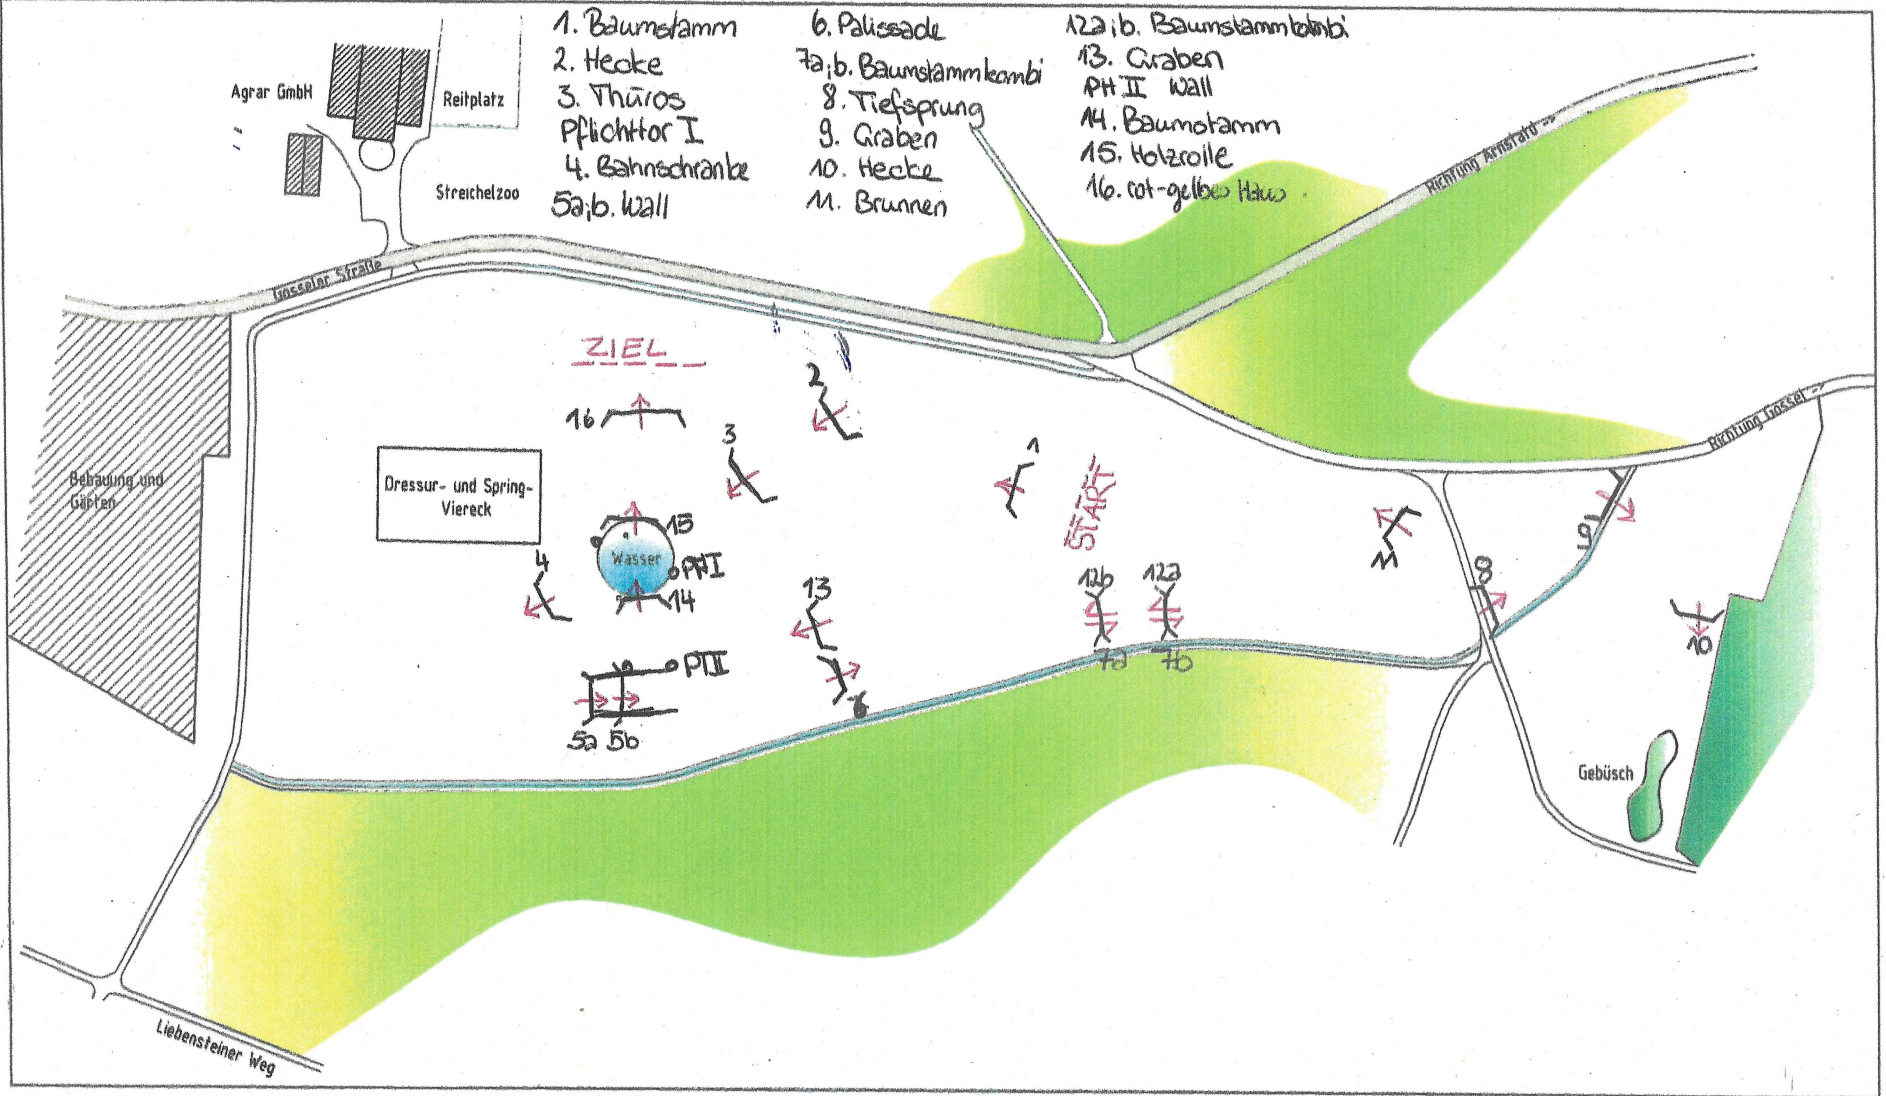 1. Baumstamm
2. Hecke
3. Thüros
Pflichttor I
4. Bahnschranke
5a;b. Wall
6. Palissade
7a;b. Baumstammkombi
8. Tiefsprung
9. Graben
10. Hecke
11. Brunnen
12a;b. Baumstammkombi
13. Graben
PH II Wall
14. Baumstamm
15. Holzrolle
16. rot-gelbes Haus
Agrar GmbH
Reitplatz
Streichelzoo
Gosseler Straße
Richtung Arnstadt ->
Richtung Gossel ->
Bebauung und
Gärten
ZIEL
16
2
3
1
START
Dressur- und Spring-
Viereck
15
Wasser
PfI
14
4
13
12b
12a
11
9
8
10
PTII
5a 5b
6
7a
7b
Gebüsch
Liebensteiner Weg